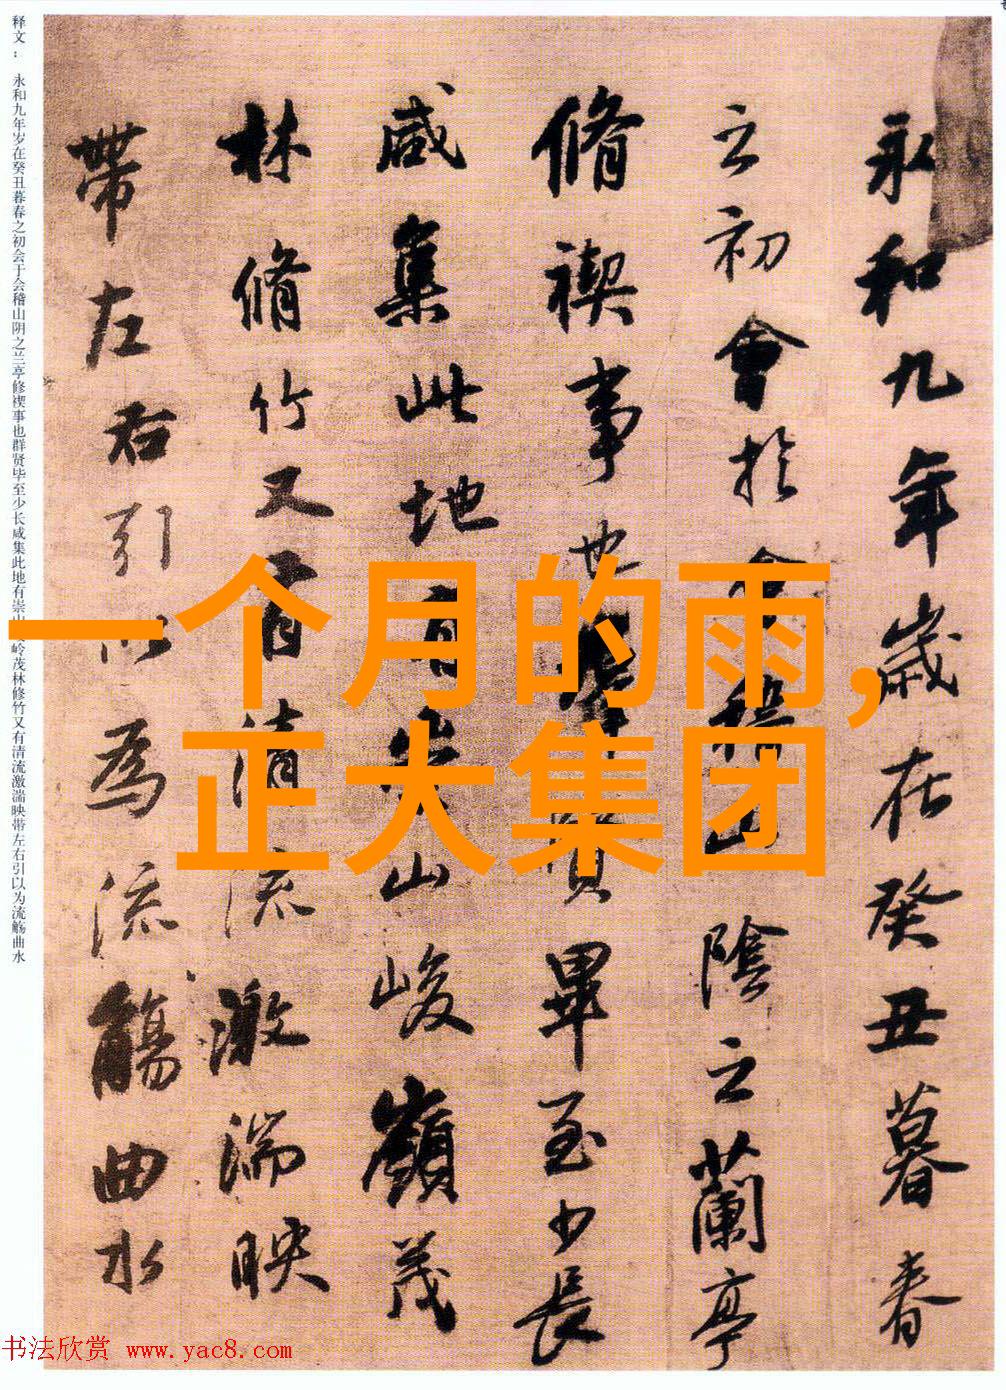 一个月的雨，
正大集团
永和九年歲在癸丑暮春
之初會於會稽山陰之蘭亭
脩禊事也羣賢畢至少長
咸集此地有崇山峻嶺茂
林脩竹又有清流激湍映
帶左右引以為流觴曲水
释文： 永和九年岁在癸丑暮春之初会于会稽山阴之兰亭修禊事也群贤毕至少长咸集此地有崇山岭茂林修竹又有清流激湍映带左右引以为流觞曲水
书法欣赏 www.yac8.com